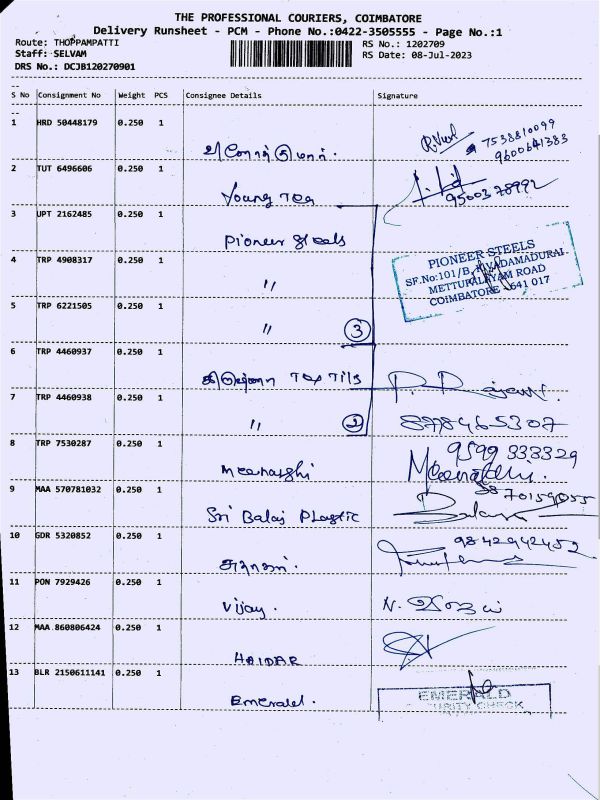 THE PROFESSIONAL COURIERS, COIMBATORE
Delivery Runsheet - PCM - Phone No.:0422-3505555 - Page No.:1
Route: THOPPAMPATTI
RS No.: 1202709
Staff: SELVAM
RS Date: 08-Jul-2023
DRS No.: DCJB120270901
S No Consignment No Weight PCS Consignee Details Signature
1 HRD 50448179 0.250 1
7538810099
9600641383
2 TUT 6496606 0.250 1
Young Tea
9500378992
3 UPT 2162485 0.250 1
Pioneer Steels
4 TRP 4908317 0.250 1
"
PIONEER STEELS
SF.No:101/B, K.VADAMADURAI
METTUPALAYAM ROAD
COIMBATORE - 641 017
5 TRP 6221505 0.250 1
" 3
6 TRP 4460937 0.250 1
7 TRP 4460938 0.250 1
" 2
8778465307
8 TRP 7530287 0.250 1
9599 333329
Meenakshi
Meenakshi.
9 MAA 570781032 0.250 1
Sri Balaj Plastic
10 GDR 5320852 0.250 1
9842942452
11 PON 7929426 0.250 1
Vijay.
12 MAA 860806424 0.250 1
HAIDAR
13 BLR 2150611141 0.250 1
Emerald.
EMERALD
SECURITY CHECK